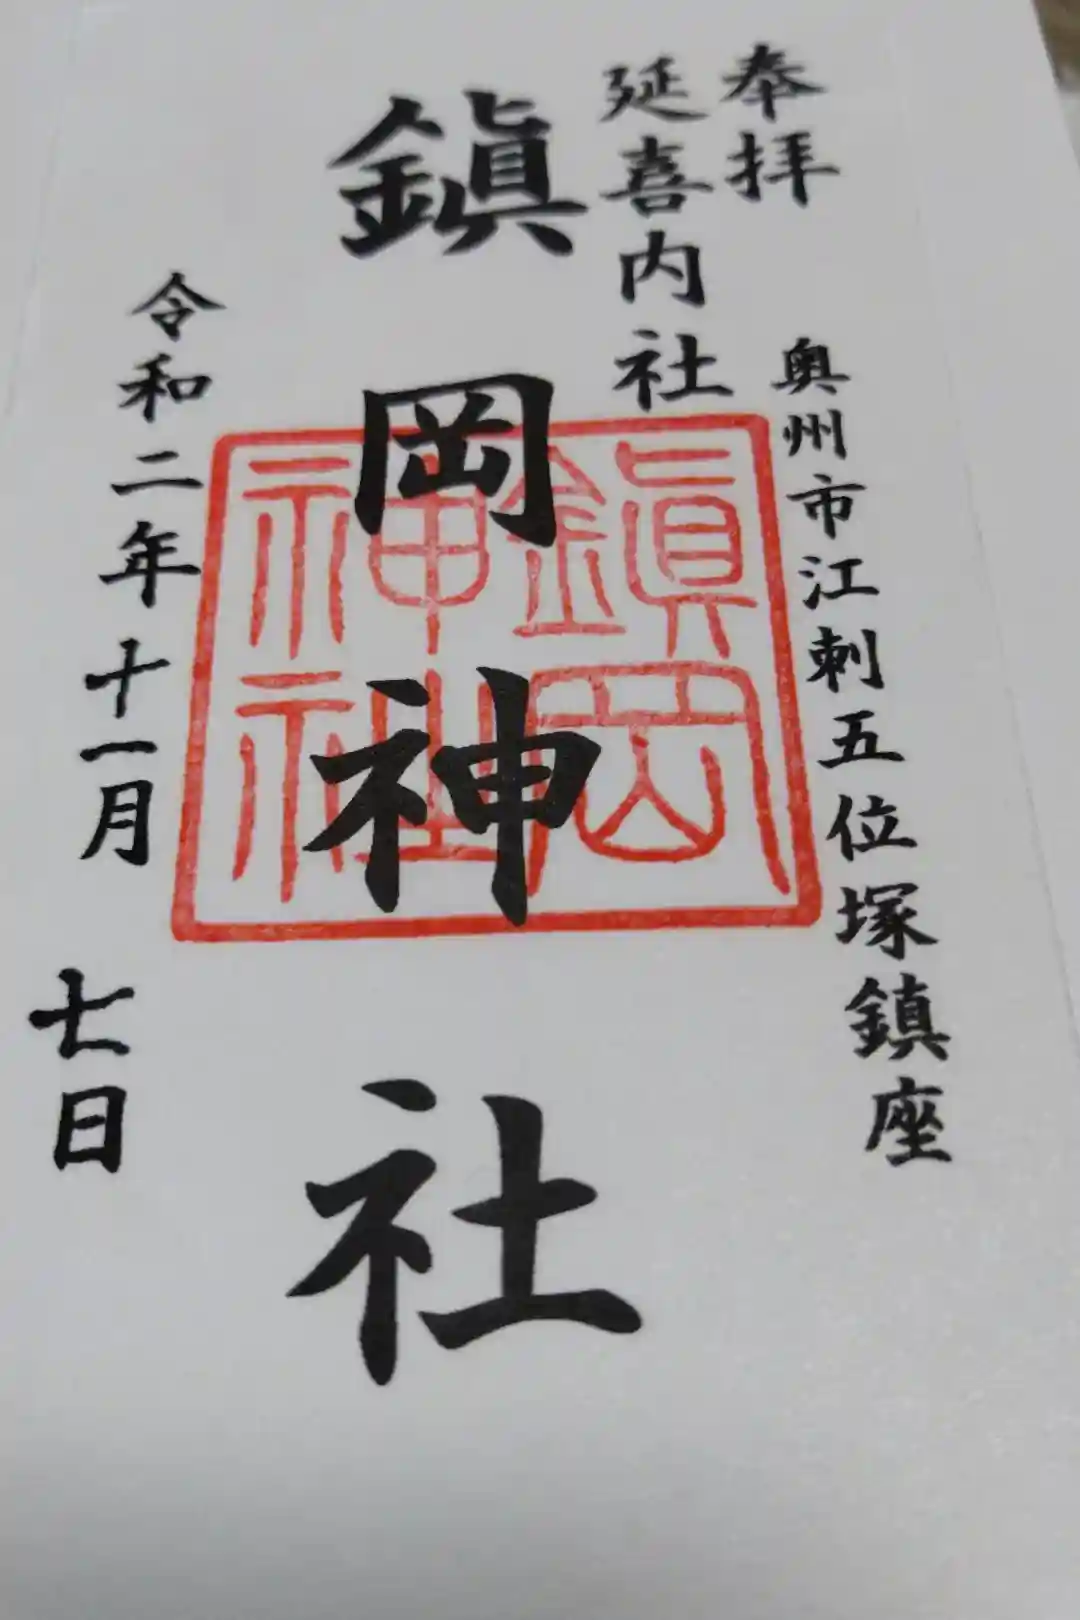 奉拝
延喜内社
奥州市江刺五位塚鎮座
鎭岡神社
鎭岡神社
令和二年十一月七日